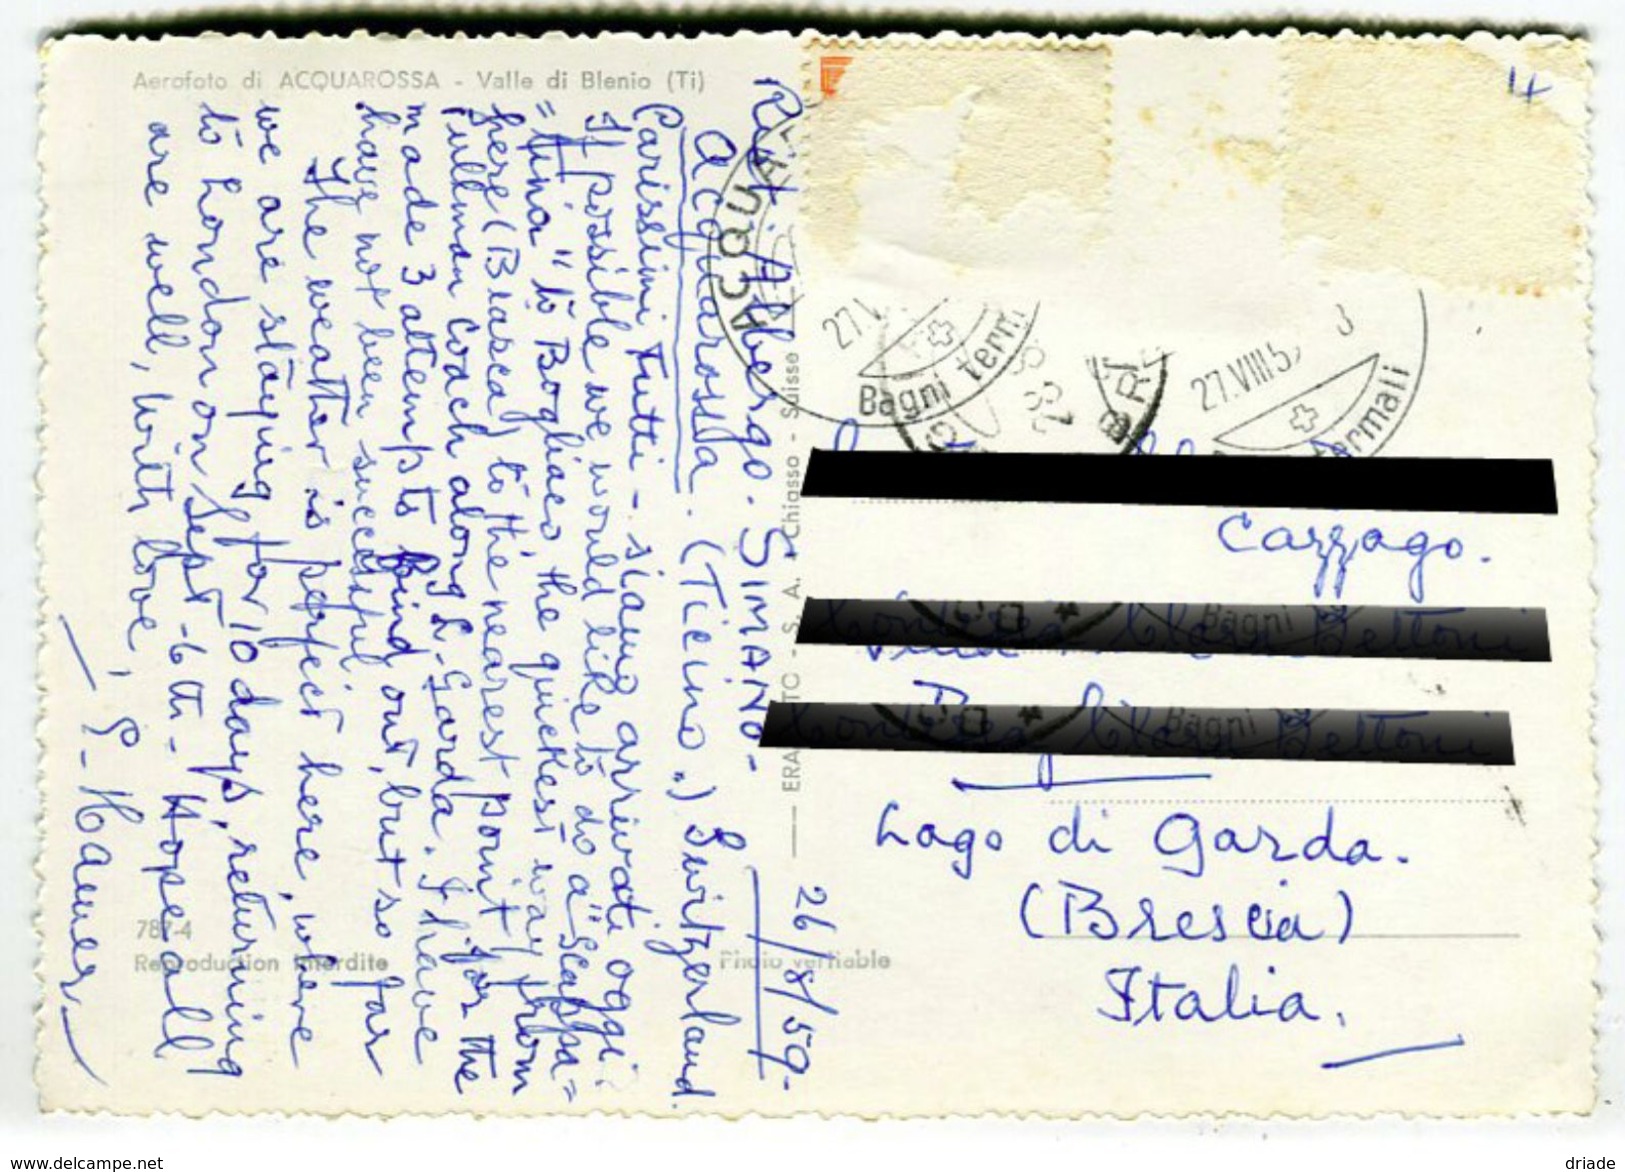 Aerofoto di ACQUAROSSA - Valle di Blenio (Ti)
4
Rist. Albergo. SIMANO-
Acquarossa. (Ticino.) Switzerland.
26/8/59-
Carissimi Tutti - siamo arrivati oggi.
If possible we would like to do a "scappa=
=tina" to Bogliaco, the quickest way from
here (Biasca) to the nearest point for the
Pullman coach along L-Garda. I have
made 3 attempts to find out, but so far
have not been successful.
The weather is perfect here, where
we are staying for 10 days, returning
to London on Sept -6th- Hope all
are well, with love,
ACQUA
27.V
Bagni term
27.VIII.5
termali
Cazzago.
Lago di Garda.
(Brescia)
Italia.
Chiasso - Suisse
787-4
Reproduction interdite
Photo véritable
www.delcampe.net
driade